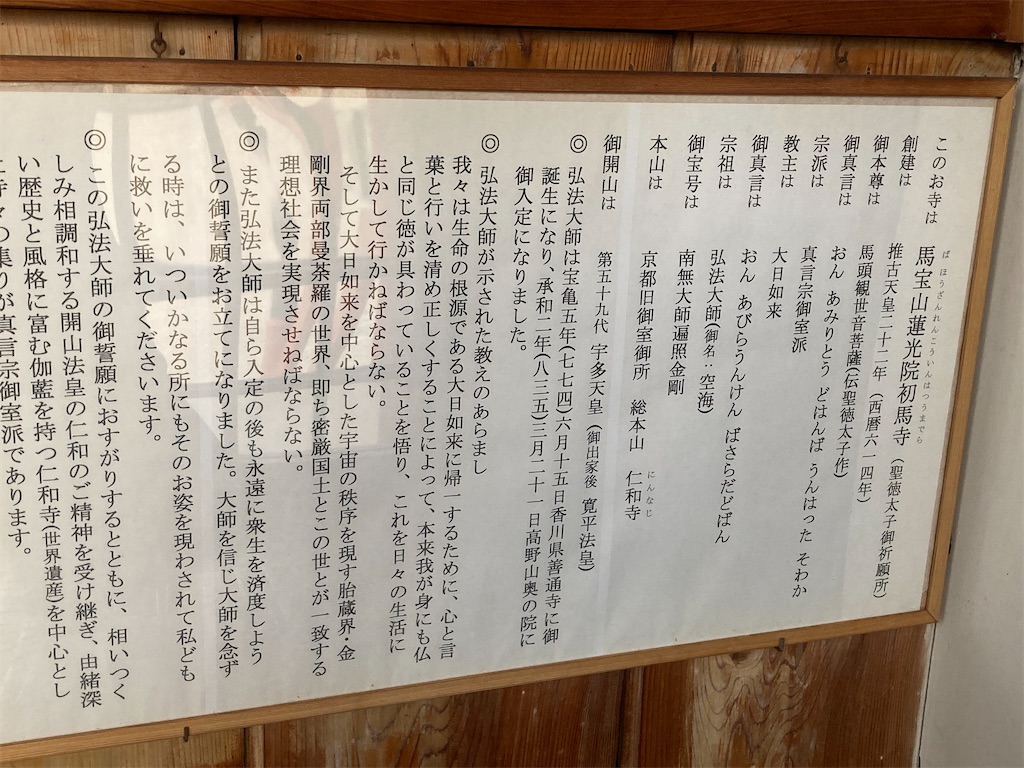 このお寺は　馬宝山蓮光院初馬寺（聖徳太子御祈願所）
ばほうざんれんこういんはつうまでら
創建は　推古天皇二十二年（西暦六一四年）
御本尊は　馬頭観世音菩薩(伝聖徳太子作)
御真言は　おん　あみりとう　どはんば　うんはった　そわか
宗派は　真言宗御室派
教主は　大日如来
御真言は　おん　あびらうんけん　ばさらだどばん
宗祖は　弘法大師(御名：空海)
御宝号は　南無大師遍照金剛
本山は　京都旧御室御所　総本山　仁和寺
にんなじ
御開山は　第五十九代　宇多天皇（御出家後　寛平法皇）
◎　弘法大師は宝亀五年(七七四)六月十五日香川県善通寺に御
誕生になり、承和二年(八三五)三月二十一日高野山奥の院に
御入定になりました。
◎　弘法大師が示された教えのあらまし
我々は生命の根源である大日如来に帰一するために、心と言
葉と行いを清め正しくすることによって、本来我が身にも仏
と同じ徳が具わっていることを悟り、これを日々の生活に
生かして行かねばならない。
そして大日如来を中心とした宇宙の秩序を現す胎蔵界・金
剛界両部曼荼羅の世界、即ち密厳国土とこの世とが一致する
理想社会を実現させねばならない。
◎　また弘法大師は自ら入定の後も永遠に衆生を済度しよう
との御誓願をお立てになりました。大師を信じ大師を念ず
る時は、いついかなる所にもそのお姿を現わされて私ども
に救いを垂れてくださいます。
◎　この弘法大師の御誓願におすがりするとともに、相いつく
しみ相調和する開山法皇の仁和のご精神を受け継ぎ、由緒深
い歴史と風格に富む伽藍を持つ仁和寺(世界遺産)を中心とし
の集りが真言宗御室派であります。